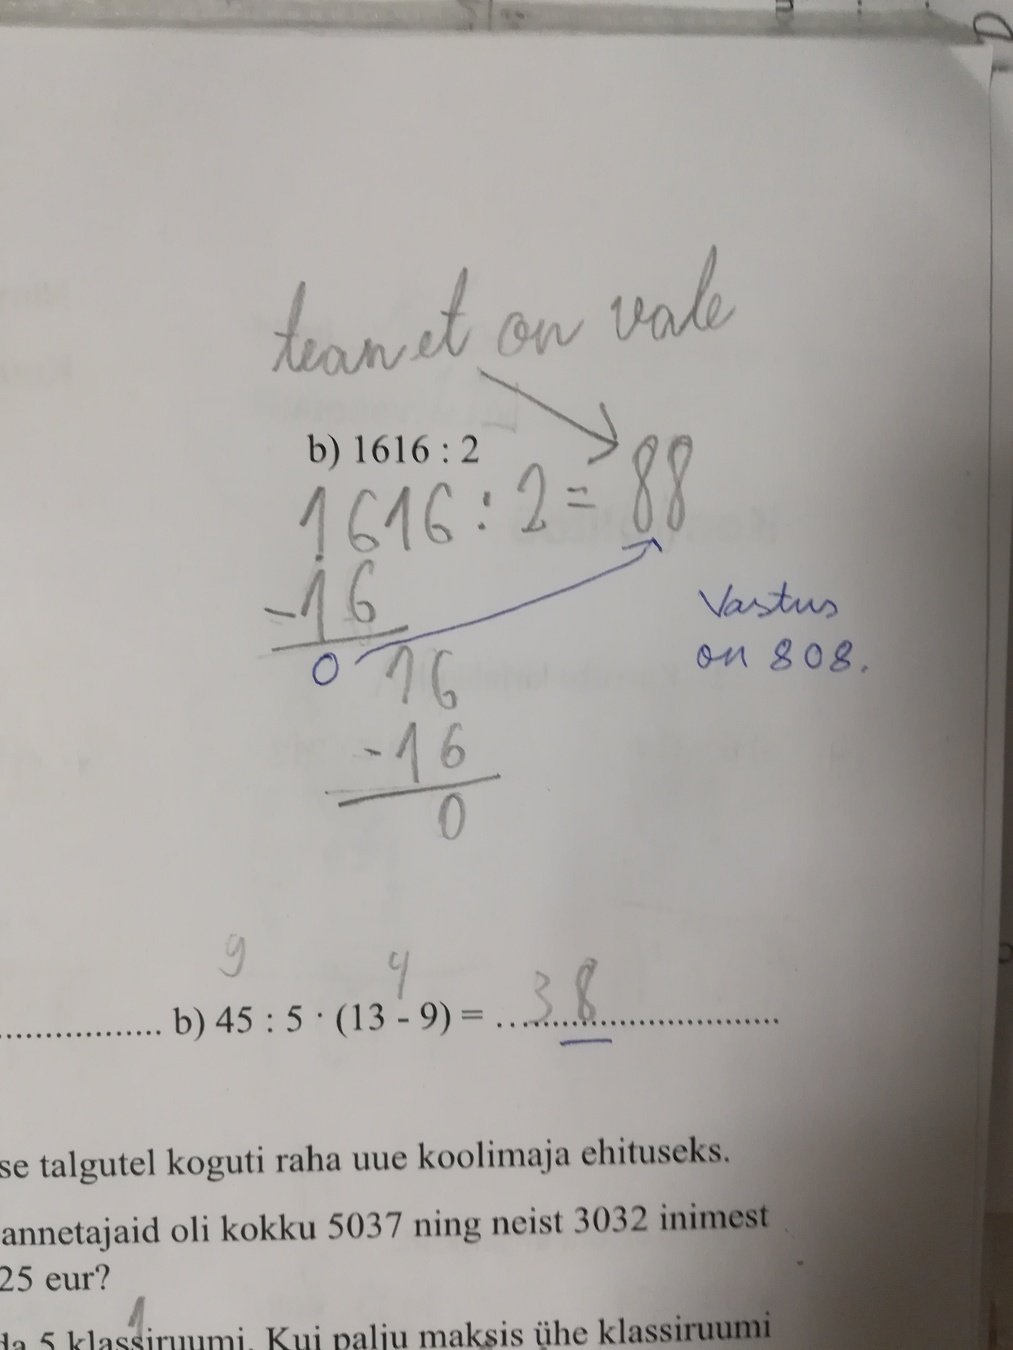 tean et on vale
b) 1616 : 2
1616 : 2 = 88
-16
0 16
-16
0
Vastus
on 808.
9 4
b) 45 : 5 · (13 - 9) = 38
se talgutel koguti raha uue koolimaja ehituseks.
annetajaid oli kokku 5037 ning neist 3032 inimest
25 eur?
1
da 5 klassiruumi. Kui palju maksis ühe klassiruumi